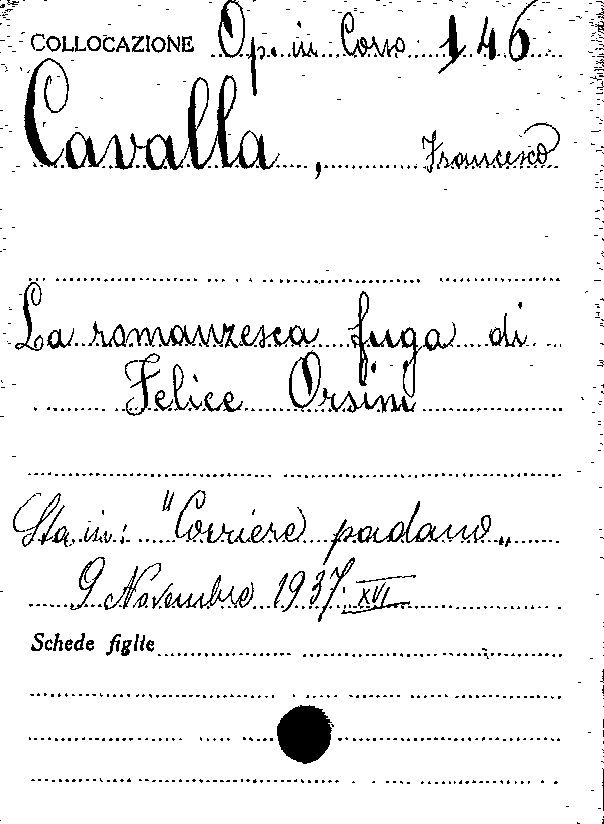 COLLOCAZIONE Op. in Corso 146
Cavalla, Francesco
La romanzesca fuga di
Felice Orsini
Sta in: "Corriere padano„
9 Novembre 1937. XVI
Schede figlie